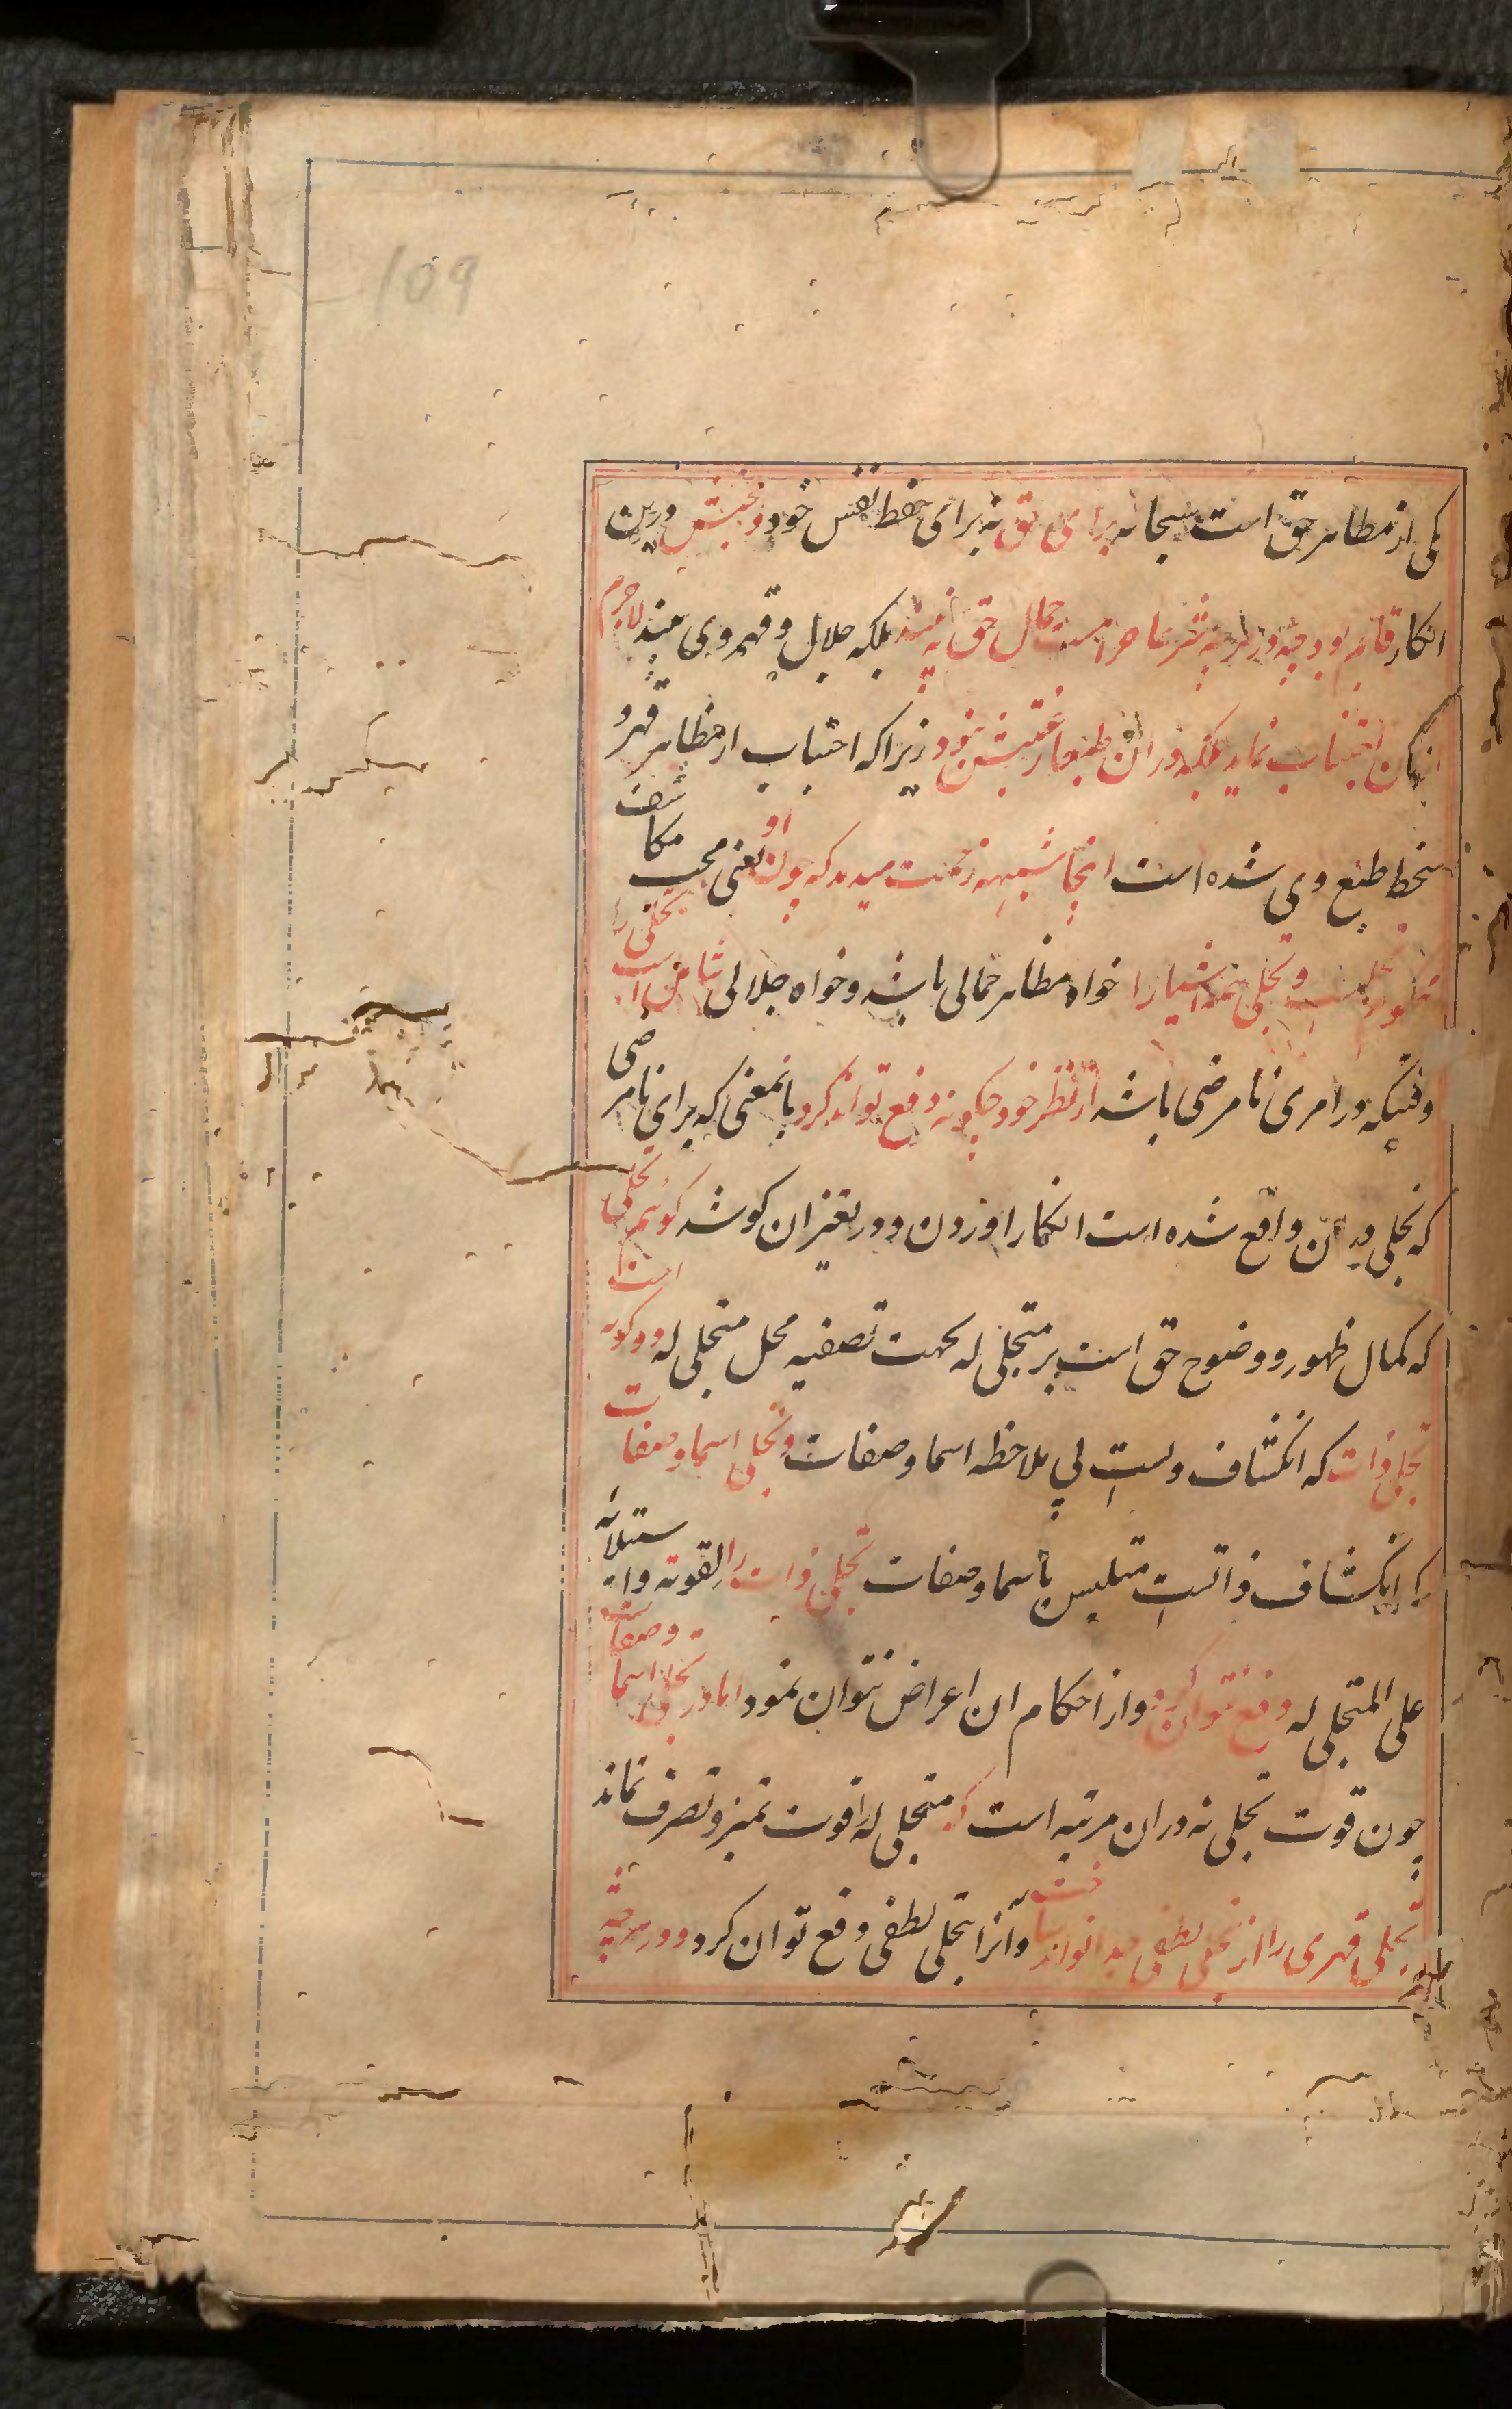 109
یکی از مظاهر حق است سبحانه برای حق نه برای حفظ نفس خود و محبتش درین
انکار قایم بود چه در هر چه شرعا حرامست جمال حق نه بیند بلکه جلال و قهر وی بیند لاجرم
ازان اجتناب نماید بلکه در ان طبعا رغبتش نبود زیرا که اجتناب از مظاهر قهر و
سخط طبع وی شده است اینجا شبهه زحمت میدهد که چون او یعنی محب مکاشف
و تجلی همه اشیا را خواه مظاهر جمالی باشد و خواه جلالی شامل است تجلی را
وقتیکه در امری نامرضی باشد از نظر خود چگونه دفع تواند کرد بانمعنی که برای نامرضی
که تجلی در ان واقع شده است انکار اوردن و در تغیر ان کوشد کویم تجلی
که کمال ظهور و وضوح حق است بر متجلی له بجهت تصفیه محل متجلی له دو کونه است
تجلی ذات که انکشاف ولست بی ملاحظه اسما و صفات و تجلی اسما و صفات
که انکشاف ذاتست متلبس باسما و صفات تجلی ذات را لقوته و استیلائه
علی المتجلی له دفع نتوان کرد و از احکام ان اعراض نتوان نمود اما در تجلی اسما و صفات
چون قوت تجلی نه دران مرتبه است که متجلی له را قوت تمیز و تصرف نماند
تجلی قهری را از تجلی لطفی جدا تواند شناخت و آنرا بتجلی لطفی دفع توان کرد و در هرچه